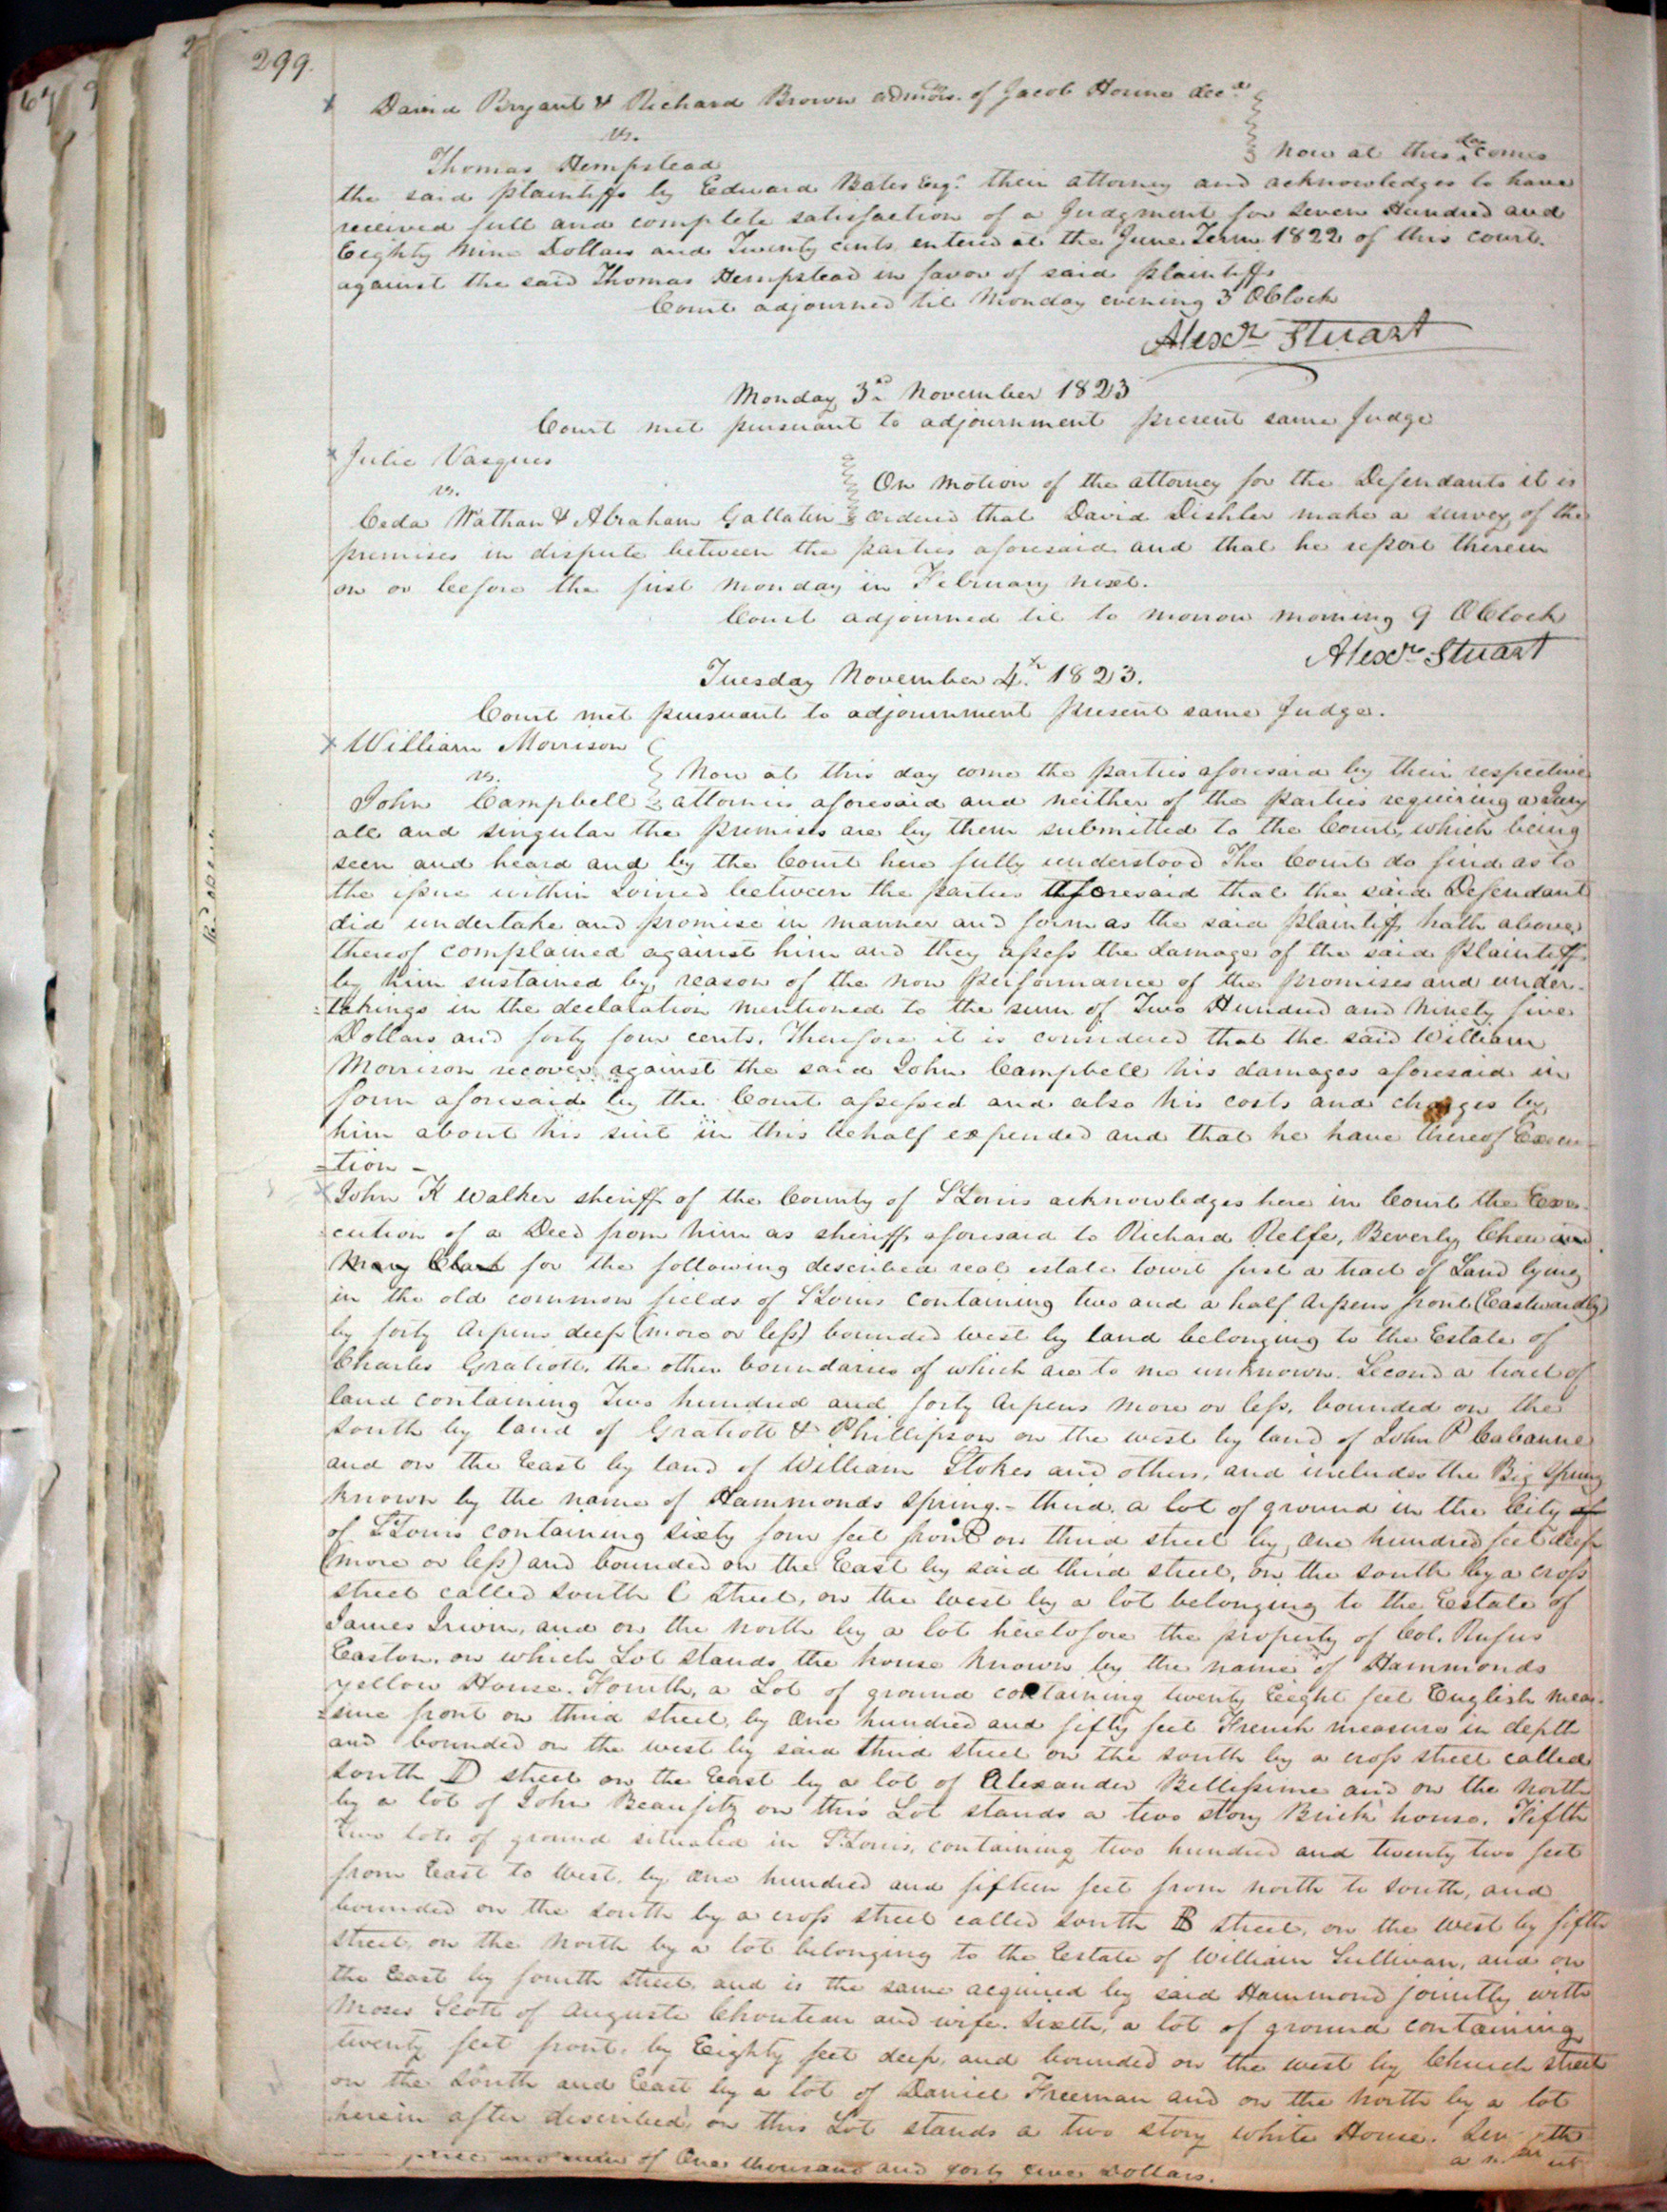 299.
David Bryant & Richard Brown admors. of Jacob Horine decd
vs.
Thomas Hempstead
Now at this day comes
the said plaintiffs by Edward Bates Esqr. their attorney and acknowledges to have
received full and complete satisfaction of a Judgment for Seven Hundred and
Eighty Nine Dollars and Twenty cents entered at the June Term 1822 of this court.
against the said Thomas Hempstead in favor of said plaintiffs
Court adjourned til Monday evening 3 OClock
Alexr Stuart
Monday 3d November 1823
Court met pursuant to adjournment present same Judge
Julie Vasques
vs.
On motion of the attorney for the Defendants it is
Ceda Nathan & Abraham Gallatin ordered that David Dishler make a survey of the
premises in dispute between the parties aforesaid and that he report therein
on or beefore the first Monday in February next.
Court adjourned til to morrow morning 9 OClock
Alexr Stuart
Tuesday November 4th 1823.
Court met pursuant to adjournment present same Judge.
William Morrison
vs.
Now at this day come the parties aforesaid by their respective
John Campbell attornies aforesaid and neither of the parties requiring a Jury
all and singular the premises are by them submitted to the Court, which being
seen and heard and by the Court here fully understood The Court do find as to
the issue within Joined between the parties aforesaid that the said Defendant
did undertake and promise in manner and form as the said plaintiff hath above
thereof complained against him and they assess the damages of the said plaintiff
by him sustained by reason of the non performance of the promises and under-
=takings in the declaration mentioned to the sum of Two Hundred and Ninety five
Dollars and forty four cents. Therefore it is considered that the said William
Morrison recover against the said John Campbell his damages aforesaid in
form aforesaid by the Court assessed and also his costs and charges by
him about his suit in this behalf expended and that he have thereof Execu-
=tion -
John K Walker sheriff of the County of St Louis acknowledges here in Court the Exe-
cution of a Deed from him as sheriff aforesaid to Richard Relfe, Beverly Chew and
Mary Clark for the following described real estate towit first a tract of Land lying
in the old common fields of St Louis containing two and a half Arpens front (Eastwardly)
by forty Arpens deep (more or less) bounded west by land belonging to the Estate of
Charles Gratiott, the other boundaries of which are to me unknown. Second a tract of
land containing Two hundred and forty Arpens more or less, bounded on the
south by land of Gratiott & Phillipson on the west by land of John P Cabanne
and on the East by land of William Stokes and others, and includes the Big Spring
known by the name of Hammonds Spring. - third, a lot of ground in the City of
of St Louis containing sixty four feet front on third street by one hundred feet deep
(more or less) and bounded on the East by said third street, on the south by a cross
street called south C street, on the west by a lot belonging to the Estate of
James Irwin, and on the north by a lot heretofore the property of Col. Rufus
Easton, on which Lot stands the house known by the name of Hammonds
yellow House. Fourth, a Lot of ground containing twenty Eeight feet English mea-
=sure front on third street, by one hundred and fifty feet French measure in depth
and bounded on the west by said third street on the south by a cross street called
south D street on the East by a lot of Alexander Bellissime and on the north
by a lot of John Beaufitz on this Lot stands a two story Brick house. Fifth
two lots of ground situated in St Louis, containing two hundred and twenty two feet
from East to West, by one hundred and fifteen feet from north to south, and
bounded on the south by a cross street called south B street, on the west by fifth
street, on the north by a lot belonging to the Estate of William Sullivan, and on
the East by fourth street, and is the same acquired by said Hammond jointly with
Moses Scott of Auguste Chouteau and wife. Sixth, a lot of ground containing
twenty feet front, by Eighty feet deep, and bounded on the west by Church street
on the south and East by a lot of Daniel Freeman and on the north by a lot
herein after described, on this Lot stands a two story white House.
of One thousand and forty five Dollars.